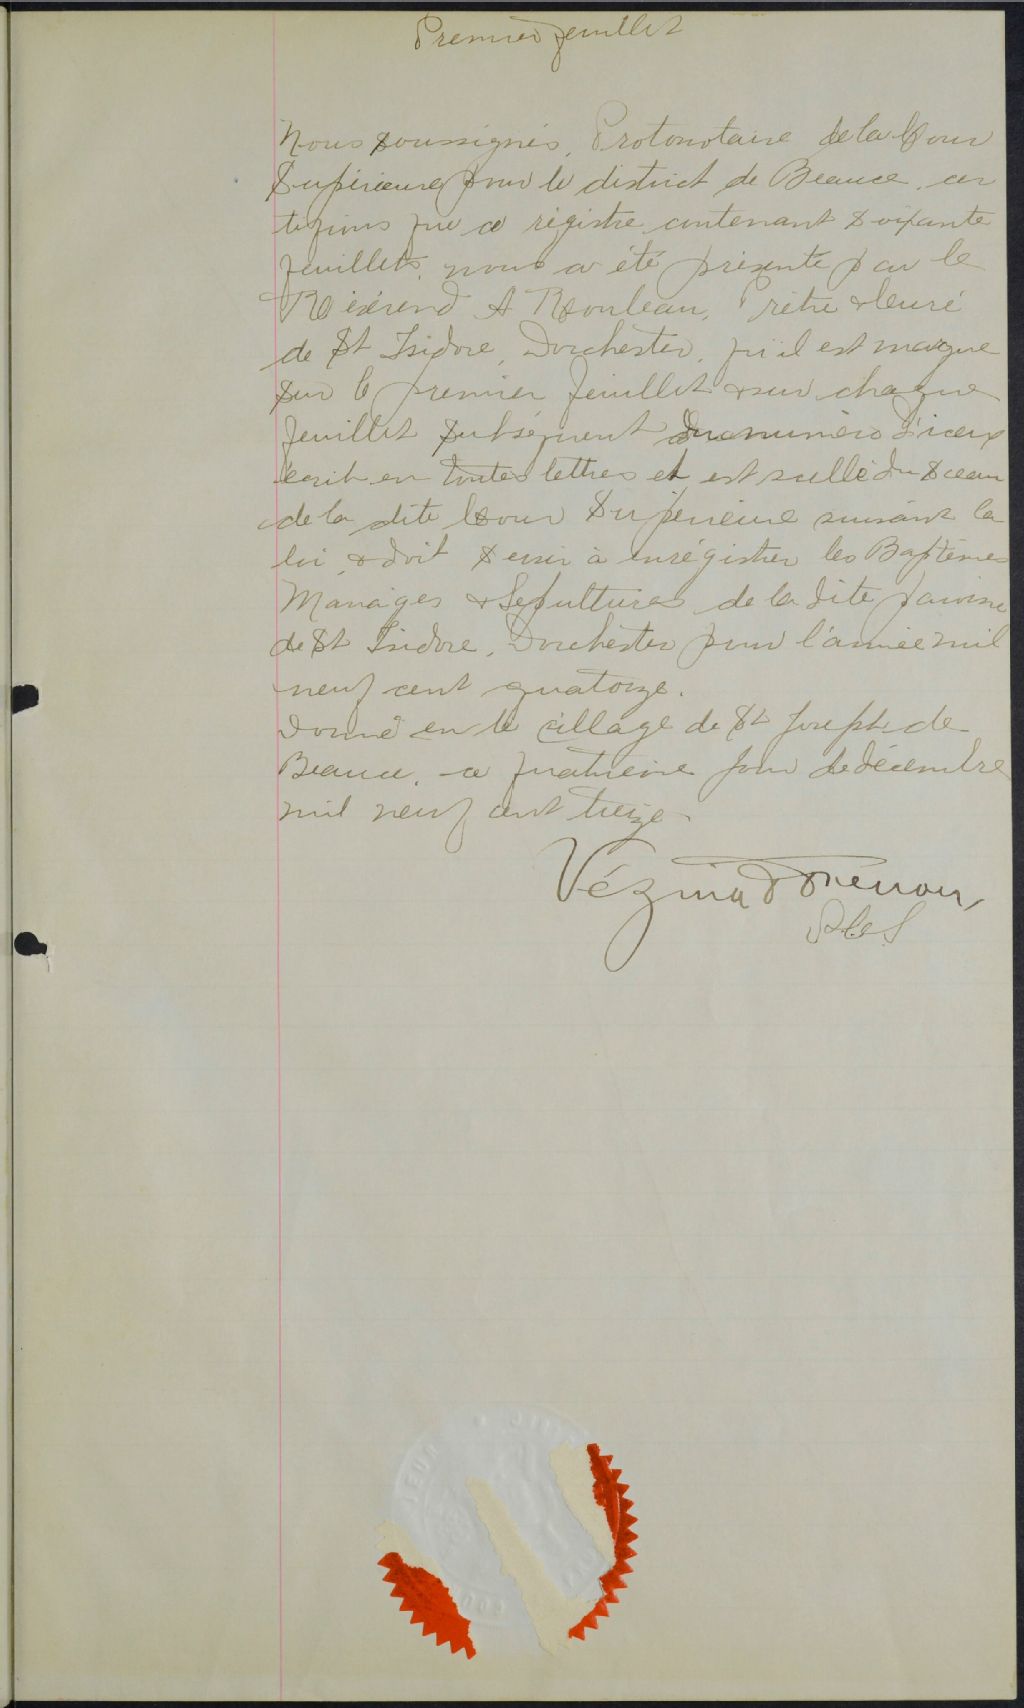 Premier feuillet
Nous soussignés, Protonotaire de la Cour
Supérieure pour le district de Beauce, cer
tifions que ce régistre contenant soixante
feuillets, nous a été présenté par le
Révérend A Rouleau, Prêtre & Curé
de St Isidore, Dorchester, qu'il est marqué
sur le premier feuillet & sur chaque
feuillet subséquent du numéro d'iceux
écrit en toutes lettres et est scellé du Sceau
de la dite Cour Supérieure suivant la
loi, & doit servir à enrégistrer les Baptêmes
Mariages & Sépultures de la dite paroisse
de St Isidore, Dorchester pour l'année mil
neuf cent quatorze.
Donné en le village de St Joseph de
Beauce, ce quatrième jour de décembre
mil neuf cent treize
Vézina &
P.C.S